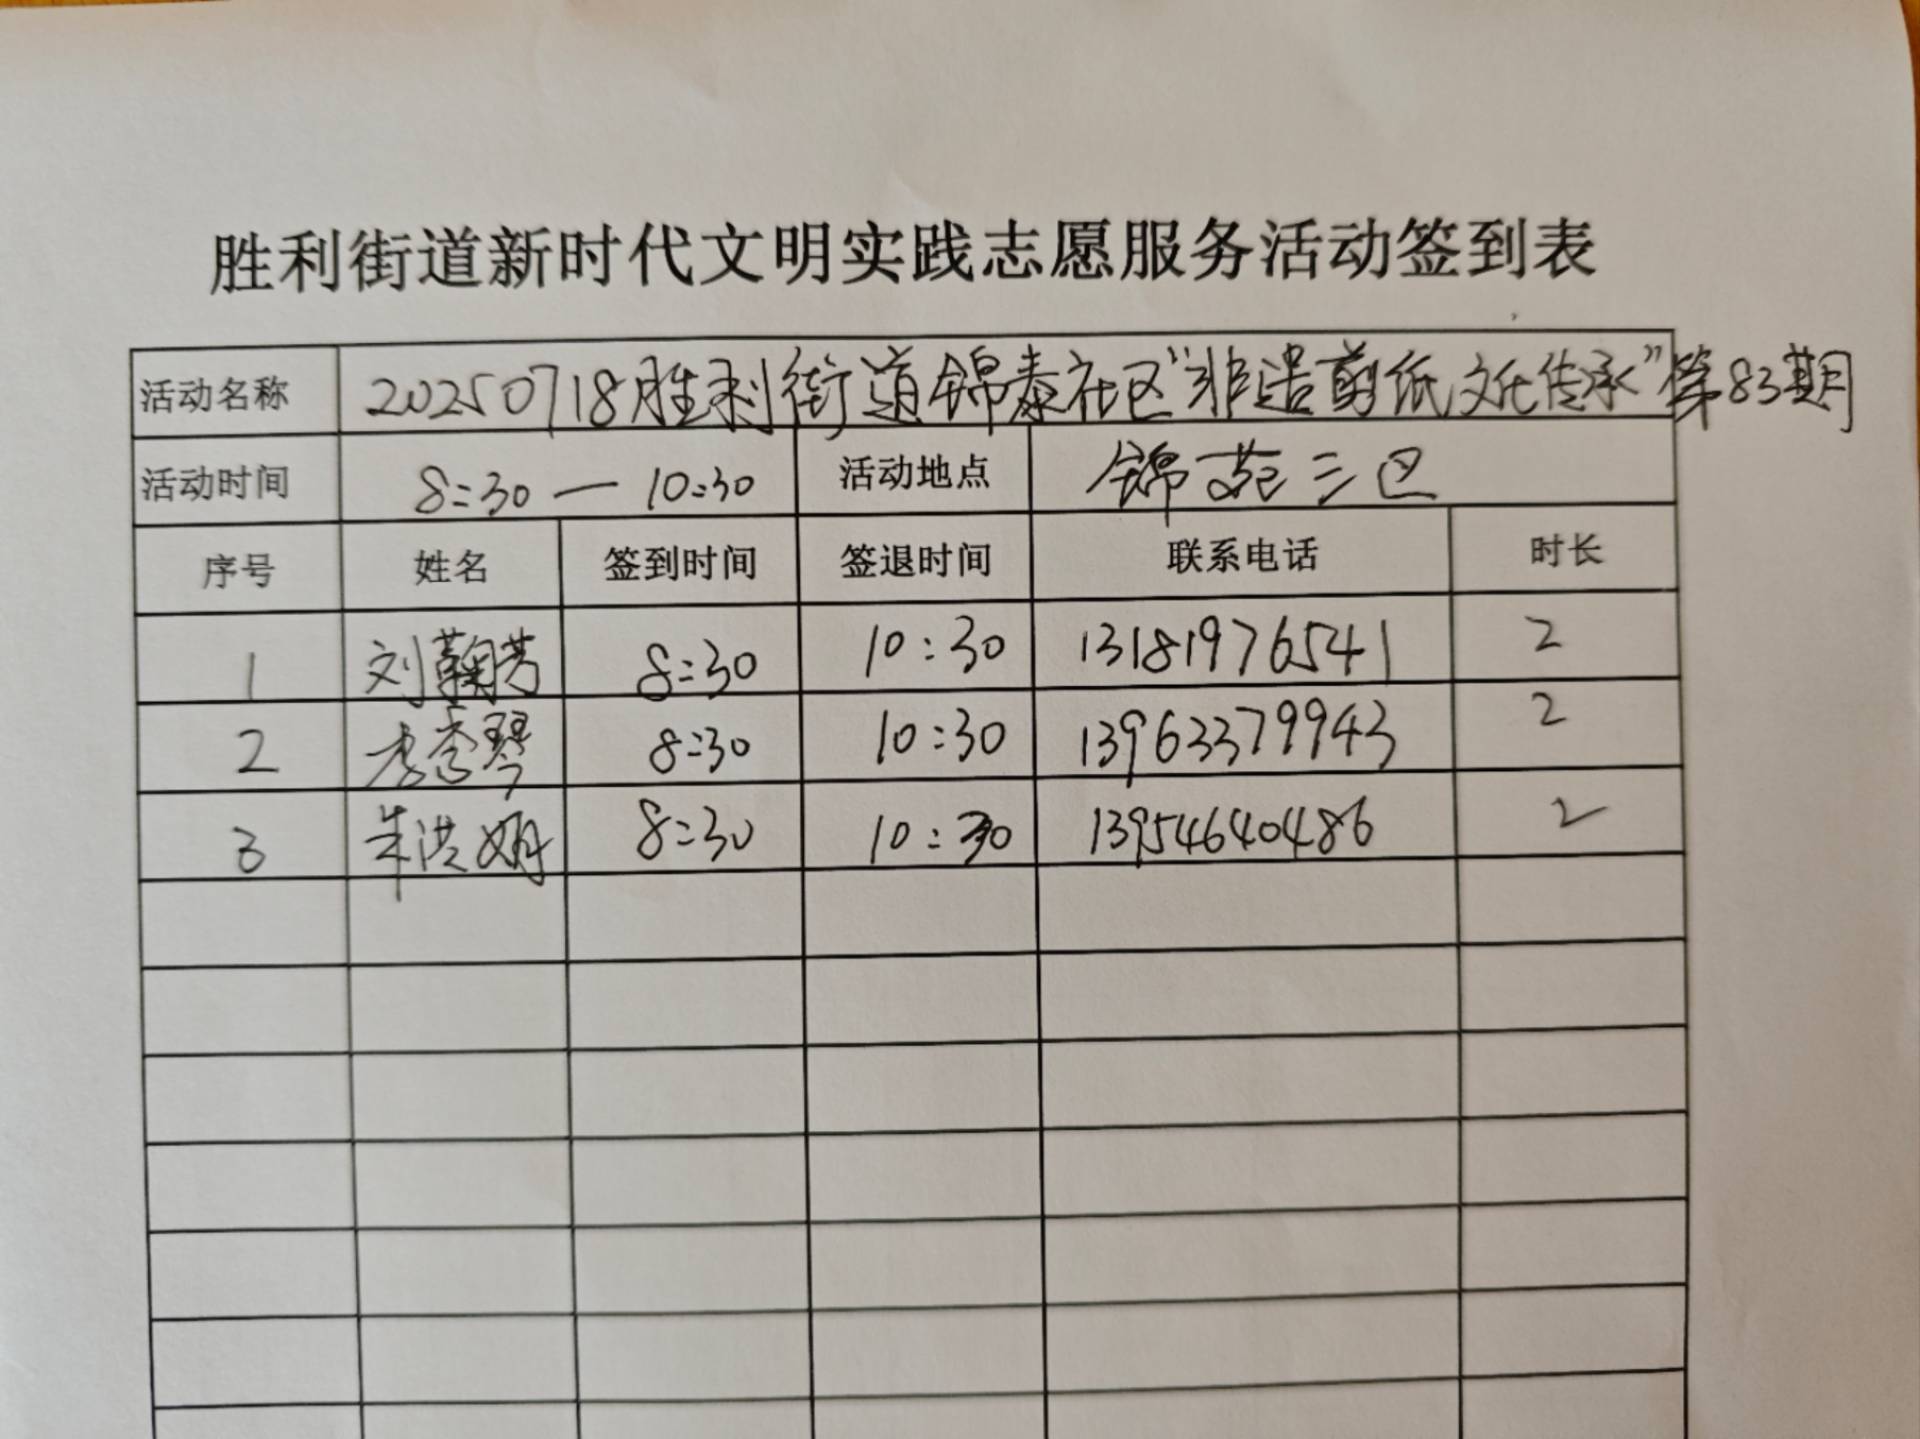 胜利街道新时代文明实践志愿服务活动签到表
活动名称 20250718胜利街道锦泰社区"非遗剪纸文化传承"第83期
活动时间 8:30—10:30 活动地点 锦苑三区
序号 姓名 签到时间 签退时间 联系电话 时长
1 刘鞠芳 8:30 10:30 13181976541 2
2 李秀琴 8:30 10:30 13963379943 2
3 朱洪娟 8:30 10:30 13954640486 2